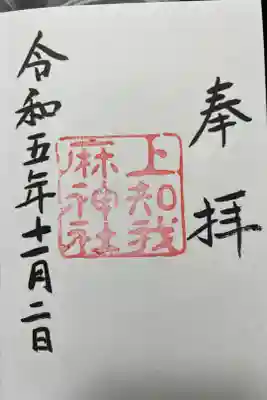 奉拝
上知我
麻神社
令和五年十一月二日